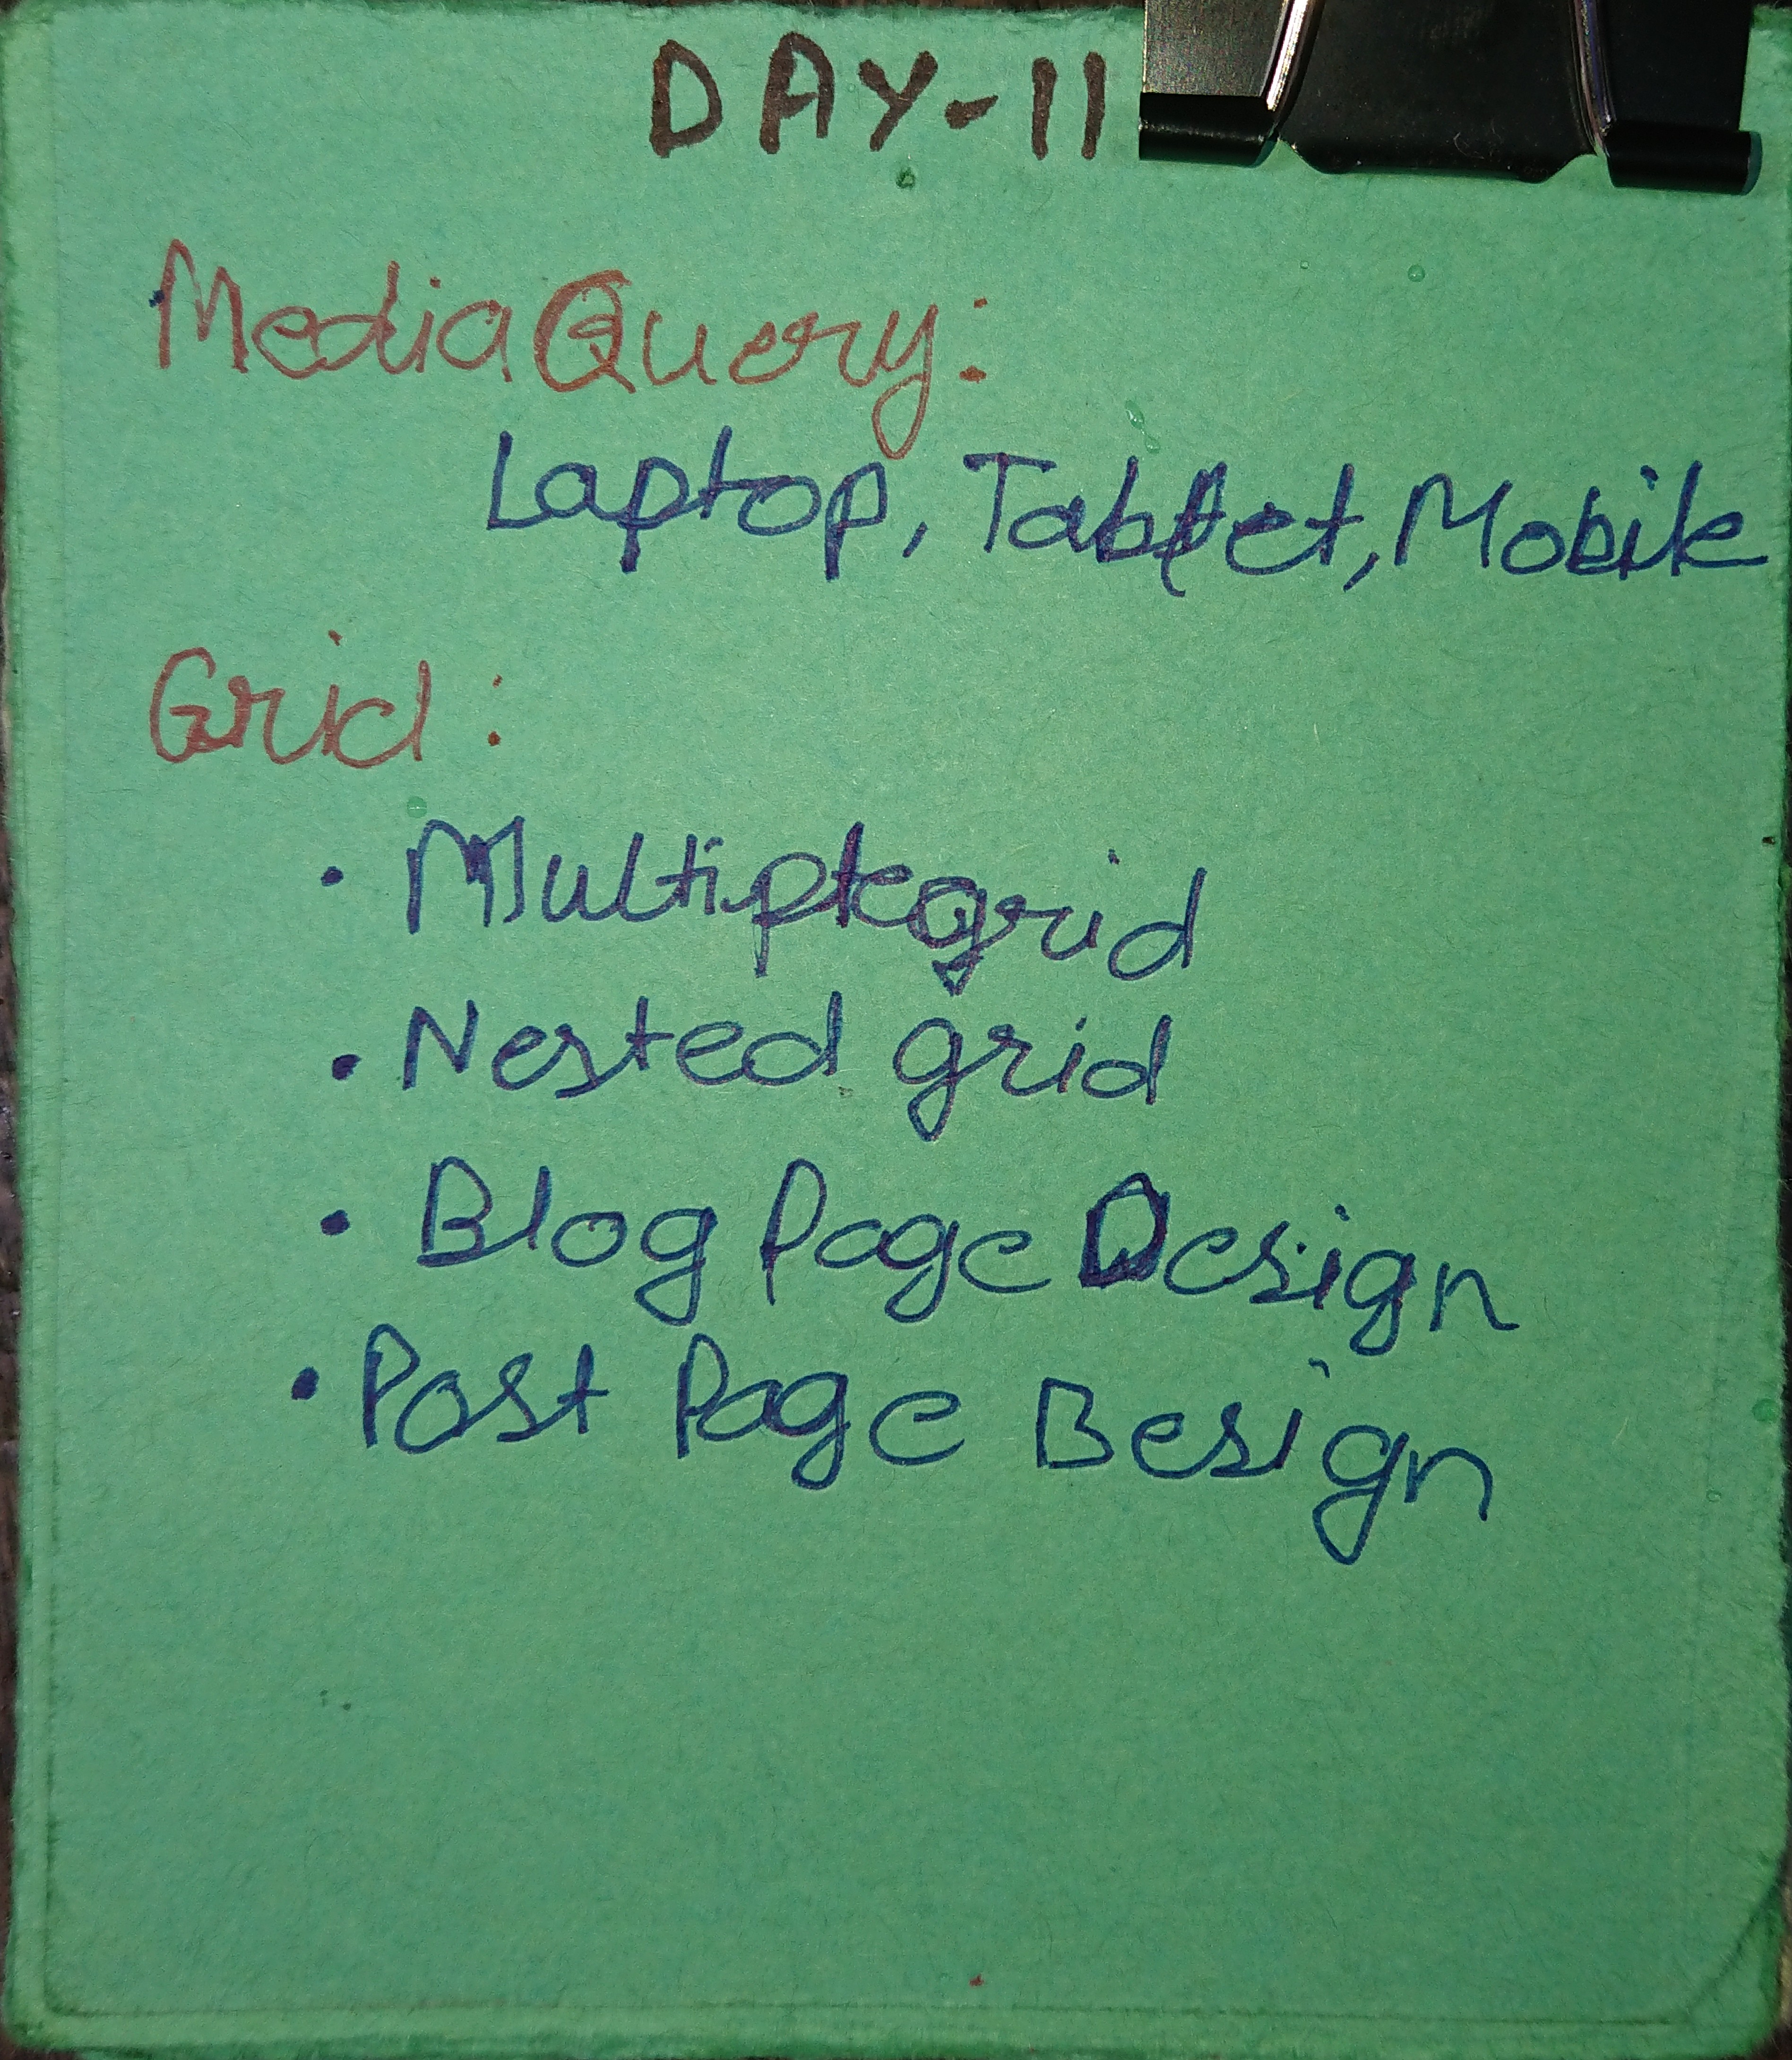 DAY-11
Media Query:
Laptop, Tablet, Mobile
Grid:
• Multiplegrid
• Nested grid
• Blog Page Design
• Post Page Besign